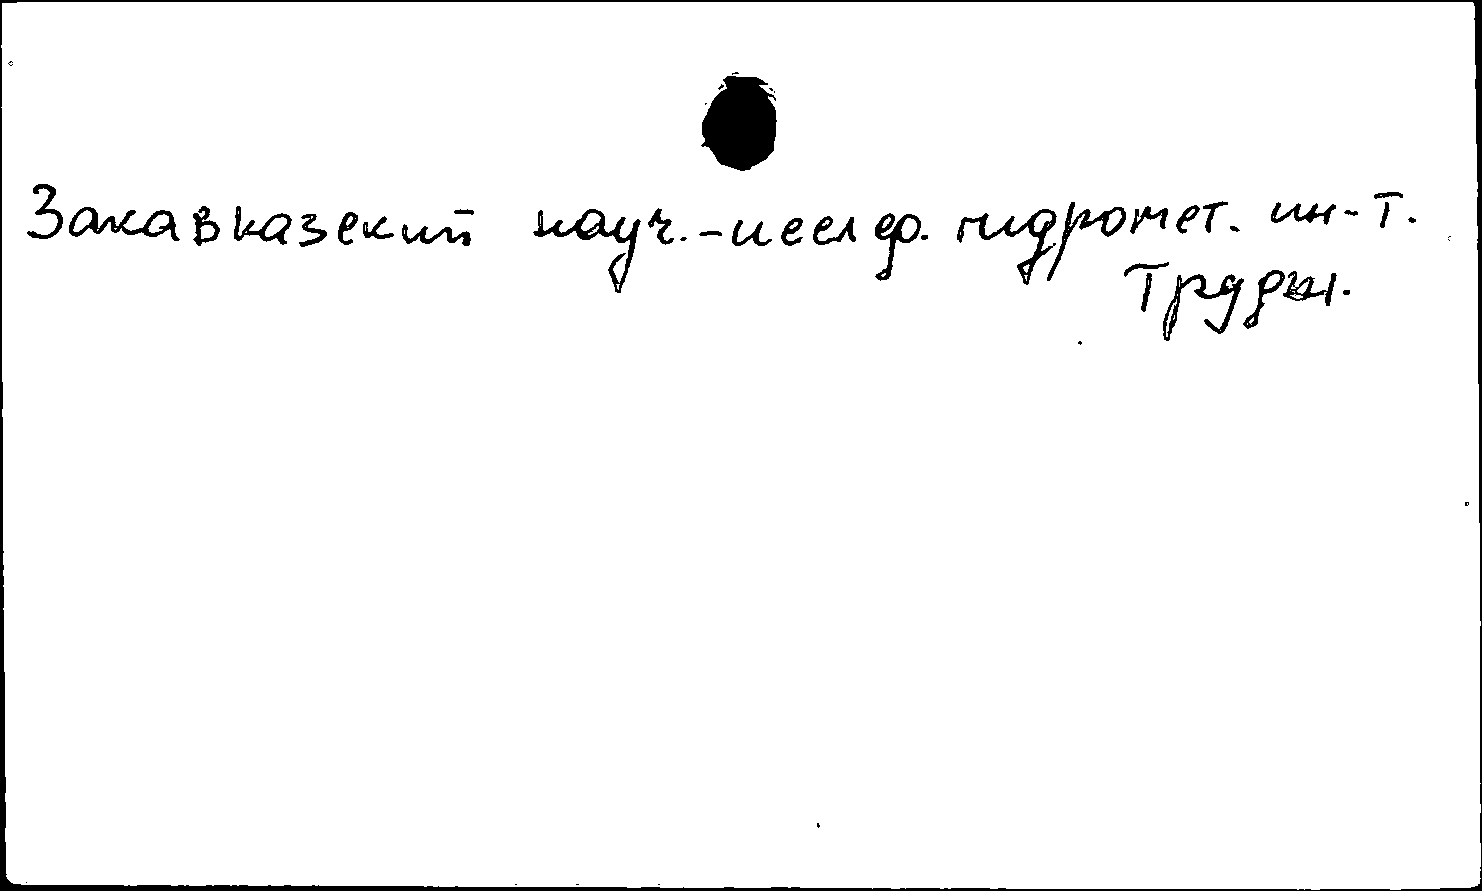 Закавказский науч.-исслед. гидромет. ин-т.
Труды.